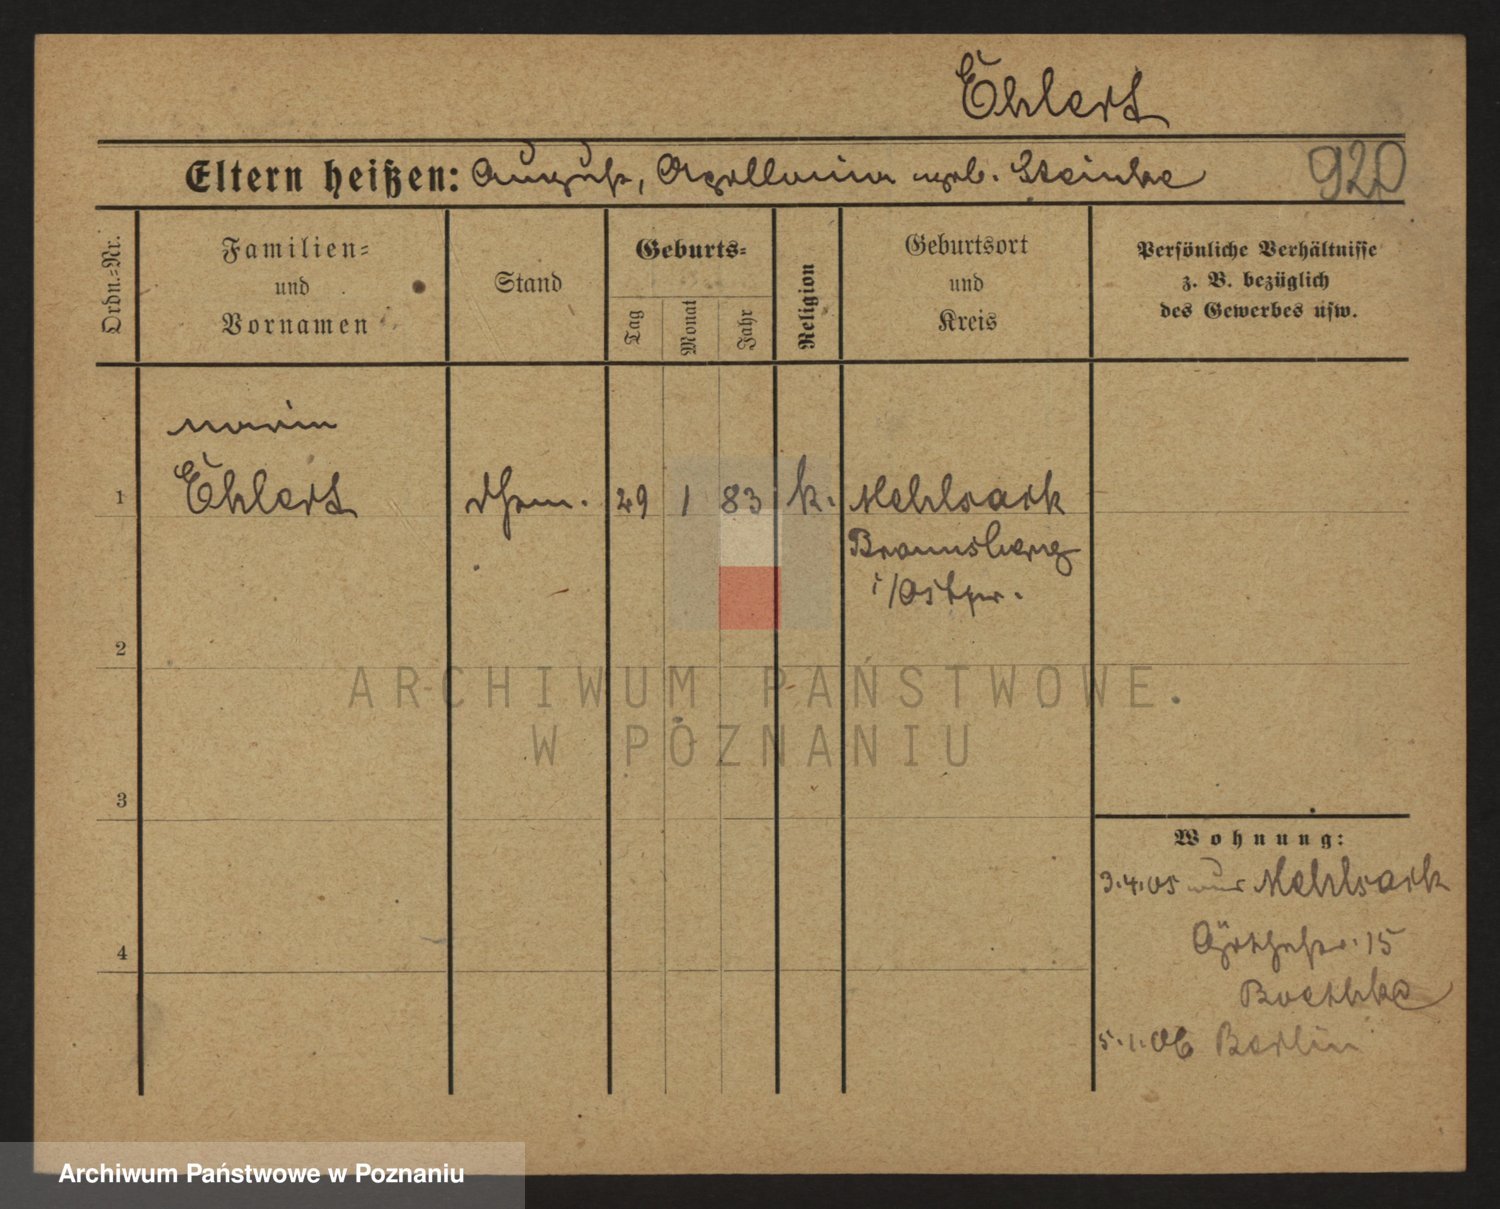 Ehlert
Eltern heißen: August, Apollonia geb. Steinke
920
Ordn.=Nr.
Familien=
und
Vornamen
Stand
Geburts=
Tag
Monat
Jahr
Religion
Geburtsort
und
Kreis
Persönliche Verhältnisse
z. B. bezüglich
des Gewerbes usw.
Maria
1 Ehlert 29 1 83 k. Mehlsack
Braunsberg
i/Ostpr.
2
3
4
Wohnung:
3.4.05 aus Mehlsack
15
Boethke
5.1.06 Berlin
ARCHIWUM PAŃSTWOWE
W POZNANIU
Archiwum Państwowe w Poznaniu